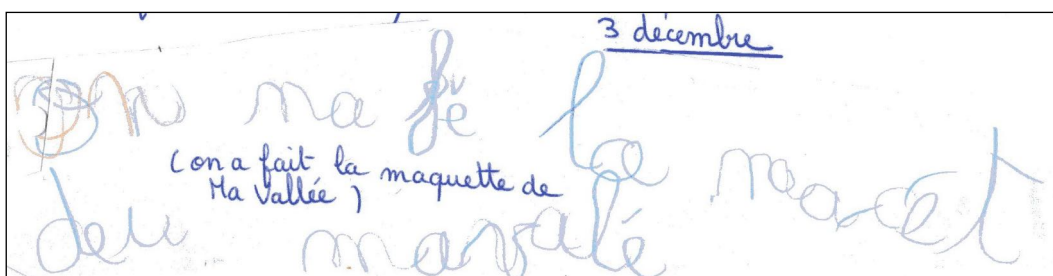 3 décembre
on na fé la macét
(on a fait la maquette de
Ma Vallée)
deu mavalé